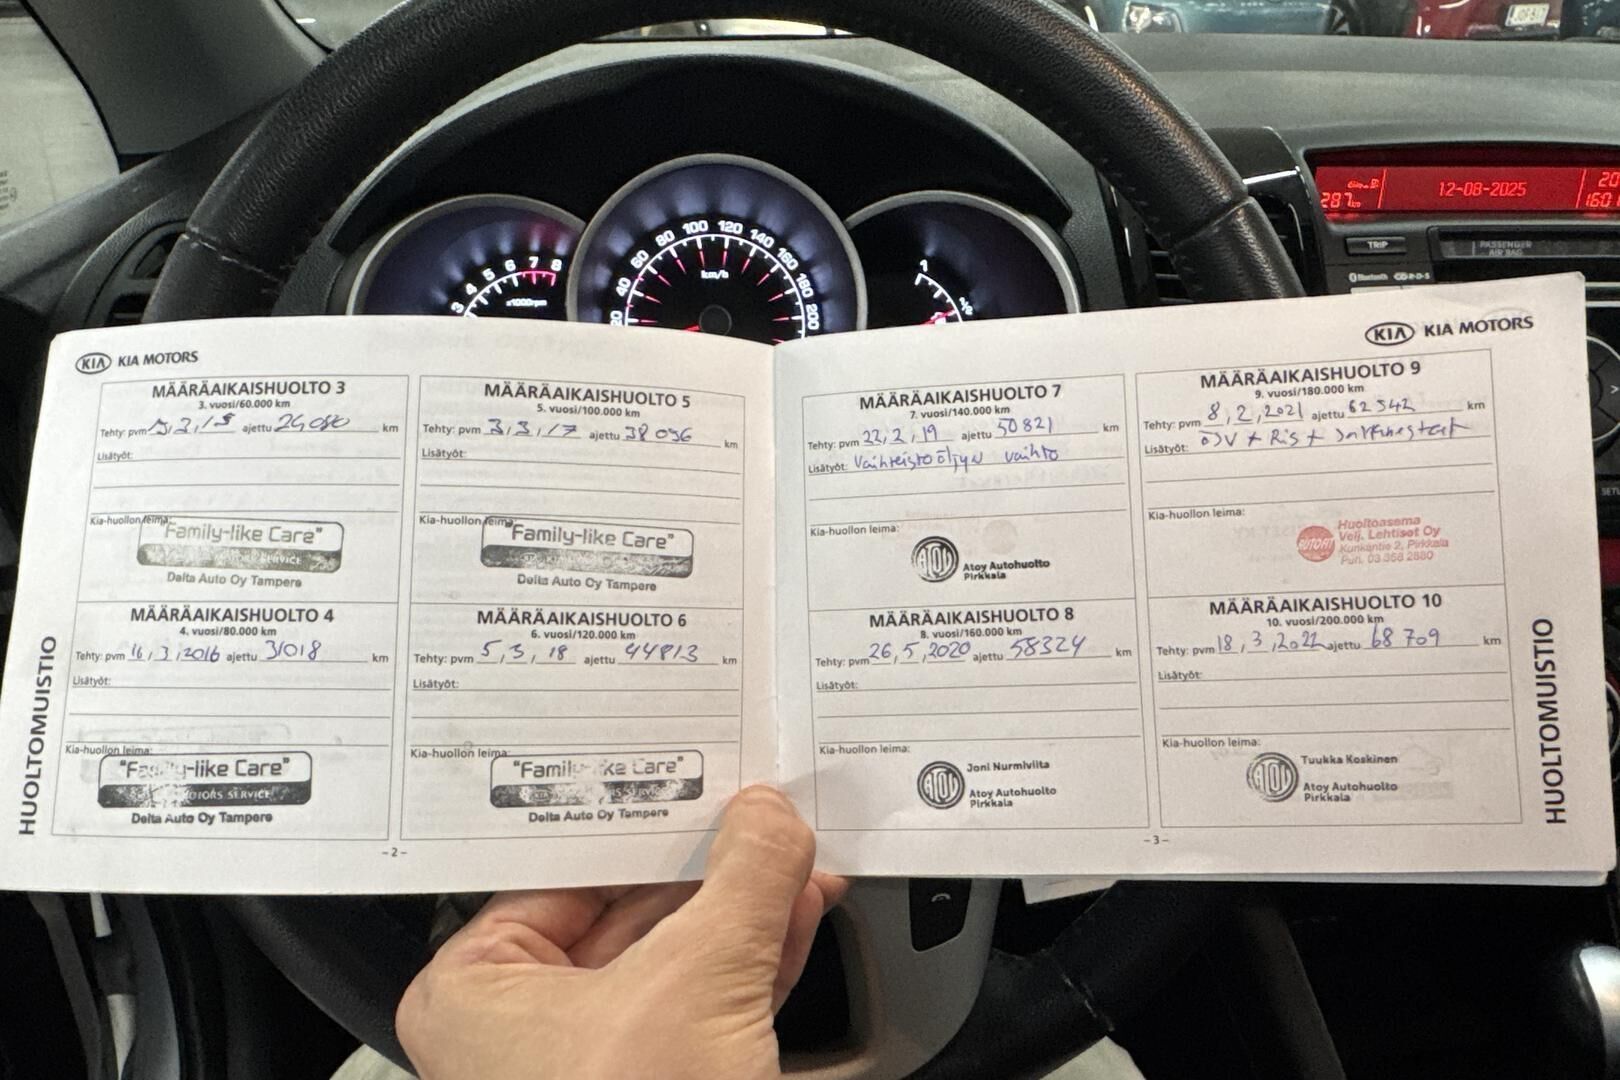 JOF-817
12-08-2025
287 km
20
1601
TRIP
PASSENGER
AIR BAG
Bluetooth
SETU
3 4 5 6 7 8
x1000rpm
20 40 60 80 100 120 140 160 180 200
km/h
1
1/2
KIA KIA MOTORS
HUOLTOMUISTIO
MÄÄRÄAIKAISHUOLTO 3
3. vuosi/60.000 km
Tehty: pvm 3, 15 ajettu 24080 km
Lisätyöt:
Kia-huollon leima:
"Family-like Care"
MOTORS SERVICE
Delta Auto Oy Tampere
MÄÄRÄAIKAISHUOLTO 4
4. vuosi/80.000 km
Tehty: pvm 16, 3, 2016 ajettu 31018 km
Lisätyöt:
Kia-huollon leima:
"Family-like Care"
MOTORS SERVICE
Delta Auto Oy Tampere
MÄÄRÄAIKAISHUOLTO 5
5. vuosi/100.000 km
Tehty: pvm 3, 3, 17 ajettu 38096 km
Lisätyöt:
Kia-huollon leima:
"Family-like Care"
Delta Auto Oy Tampere
MÄÄRÄAIKAISHUOLTO 6
6. vuosi/120.000 km
Tehty: pvm 5, 3, 18 ajettu 44813 km
Lisätyöt:
Kia-huollon leima:
"Family-like Care"
KIA MOTORS SERVICE
Delta Auto Oy Tampere
- 2 -
KIA KIA MOTORS
MÄÄRÄAIKAISHUOLTO 7
7. vuosi/140.000 km
Tehty: pvm 22, 2, 19 ajettu 50821 km
Lisätyöt: Vaihteistoöljyn vaihto
Kia-huollon leima:
ATOY Atoy Autohuolto
Pirkkala
MÄÄRÄAIKAISHUOLTO 8
8. vuosi/160.000 km
Tehty: pvm 26, 5, 2020 ajettu 58324 km
Lisätyöt:
Kia-huollon leima:
Joni Nurmiviita
ATOY Atoy Autohuolto
Pirkkala
MÄÄRÄAIKAISHUOLTO 9
9. vuosi/180.000 km
Tehty: pvm 8, 2, 2021 ajettu 62542 km
Lisätyöt: ÖSV + Ris +
Kia-huollon leima:
AUTORI Huoltoasema
Velj. Lehtiset Oy
Kunkantie 2, Pirkkala
Puh. 03 368 2880
MÄÄRÄAIKAISHUOLTO 10
10. vuosi/200.000 km
Tehty: pvm 18, 3, 2022 ajettu 68709 km
Lisätyöt:
Kia-huollon leima:
Tuukka Koskinen
ATOY Atoy Autohuolto
Pirkkala
- 3 -
HUOLTOMUISTIO